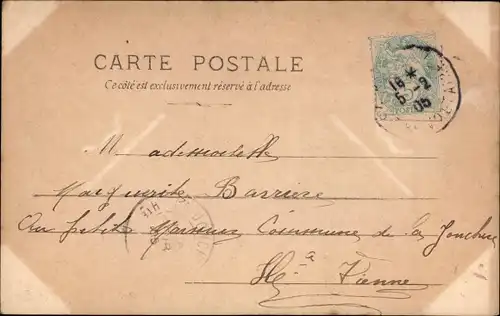 CARTE POSTALE
Ce côté est exclusivement réservé à l'adresse
16 *
5 - 2
05
Mademoiselle
Marguerite Barrière
Au petit Commune de la Jonchère
Hte Vienne